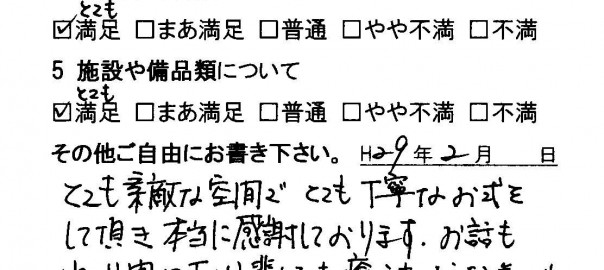 とても
☑満足 □まあ満足 □普通 □やや不満 □不満
5 施設や備品類について
とても
☑満足 □まあ満足 □普通 □やや不満 □不満
その他ご自由にお書き下さい。 H29年2月 日
とても素敵な空間で とても丁寧なお式を
して頂き 本当に感謝しております。お話も